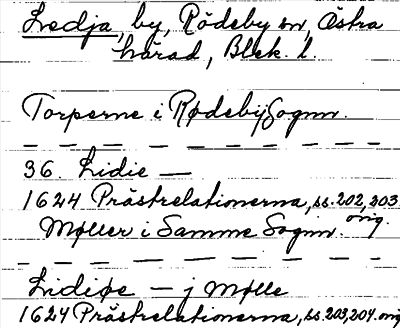 Ledja, by, Rödeby sn, Östra
härad, Blek. l.
Torperne i Rødeby Sognn.
36. Lidie —
1624 Prästrelationerna, ss. 202, 203
orig.
Møller i Samme Sognn.
Lidiøe — j Mølle
1624 Prästrelationerna, ss 203, 204. orig